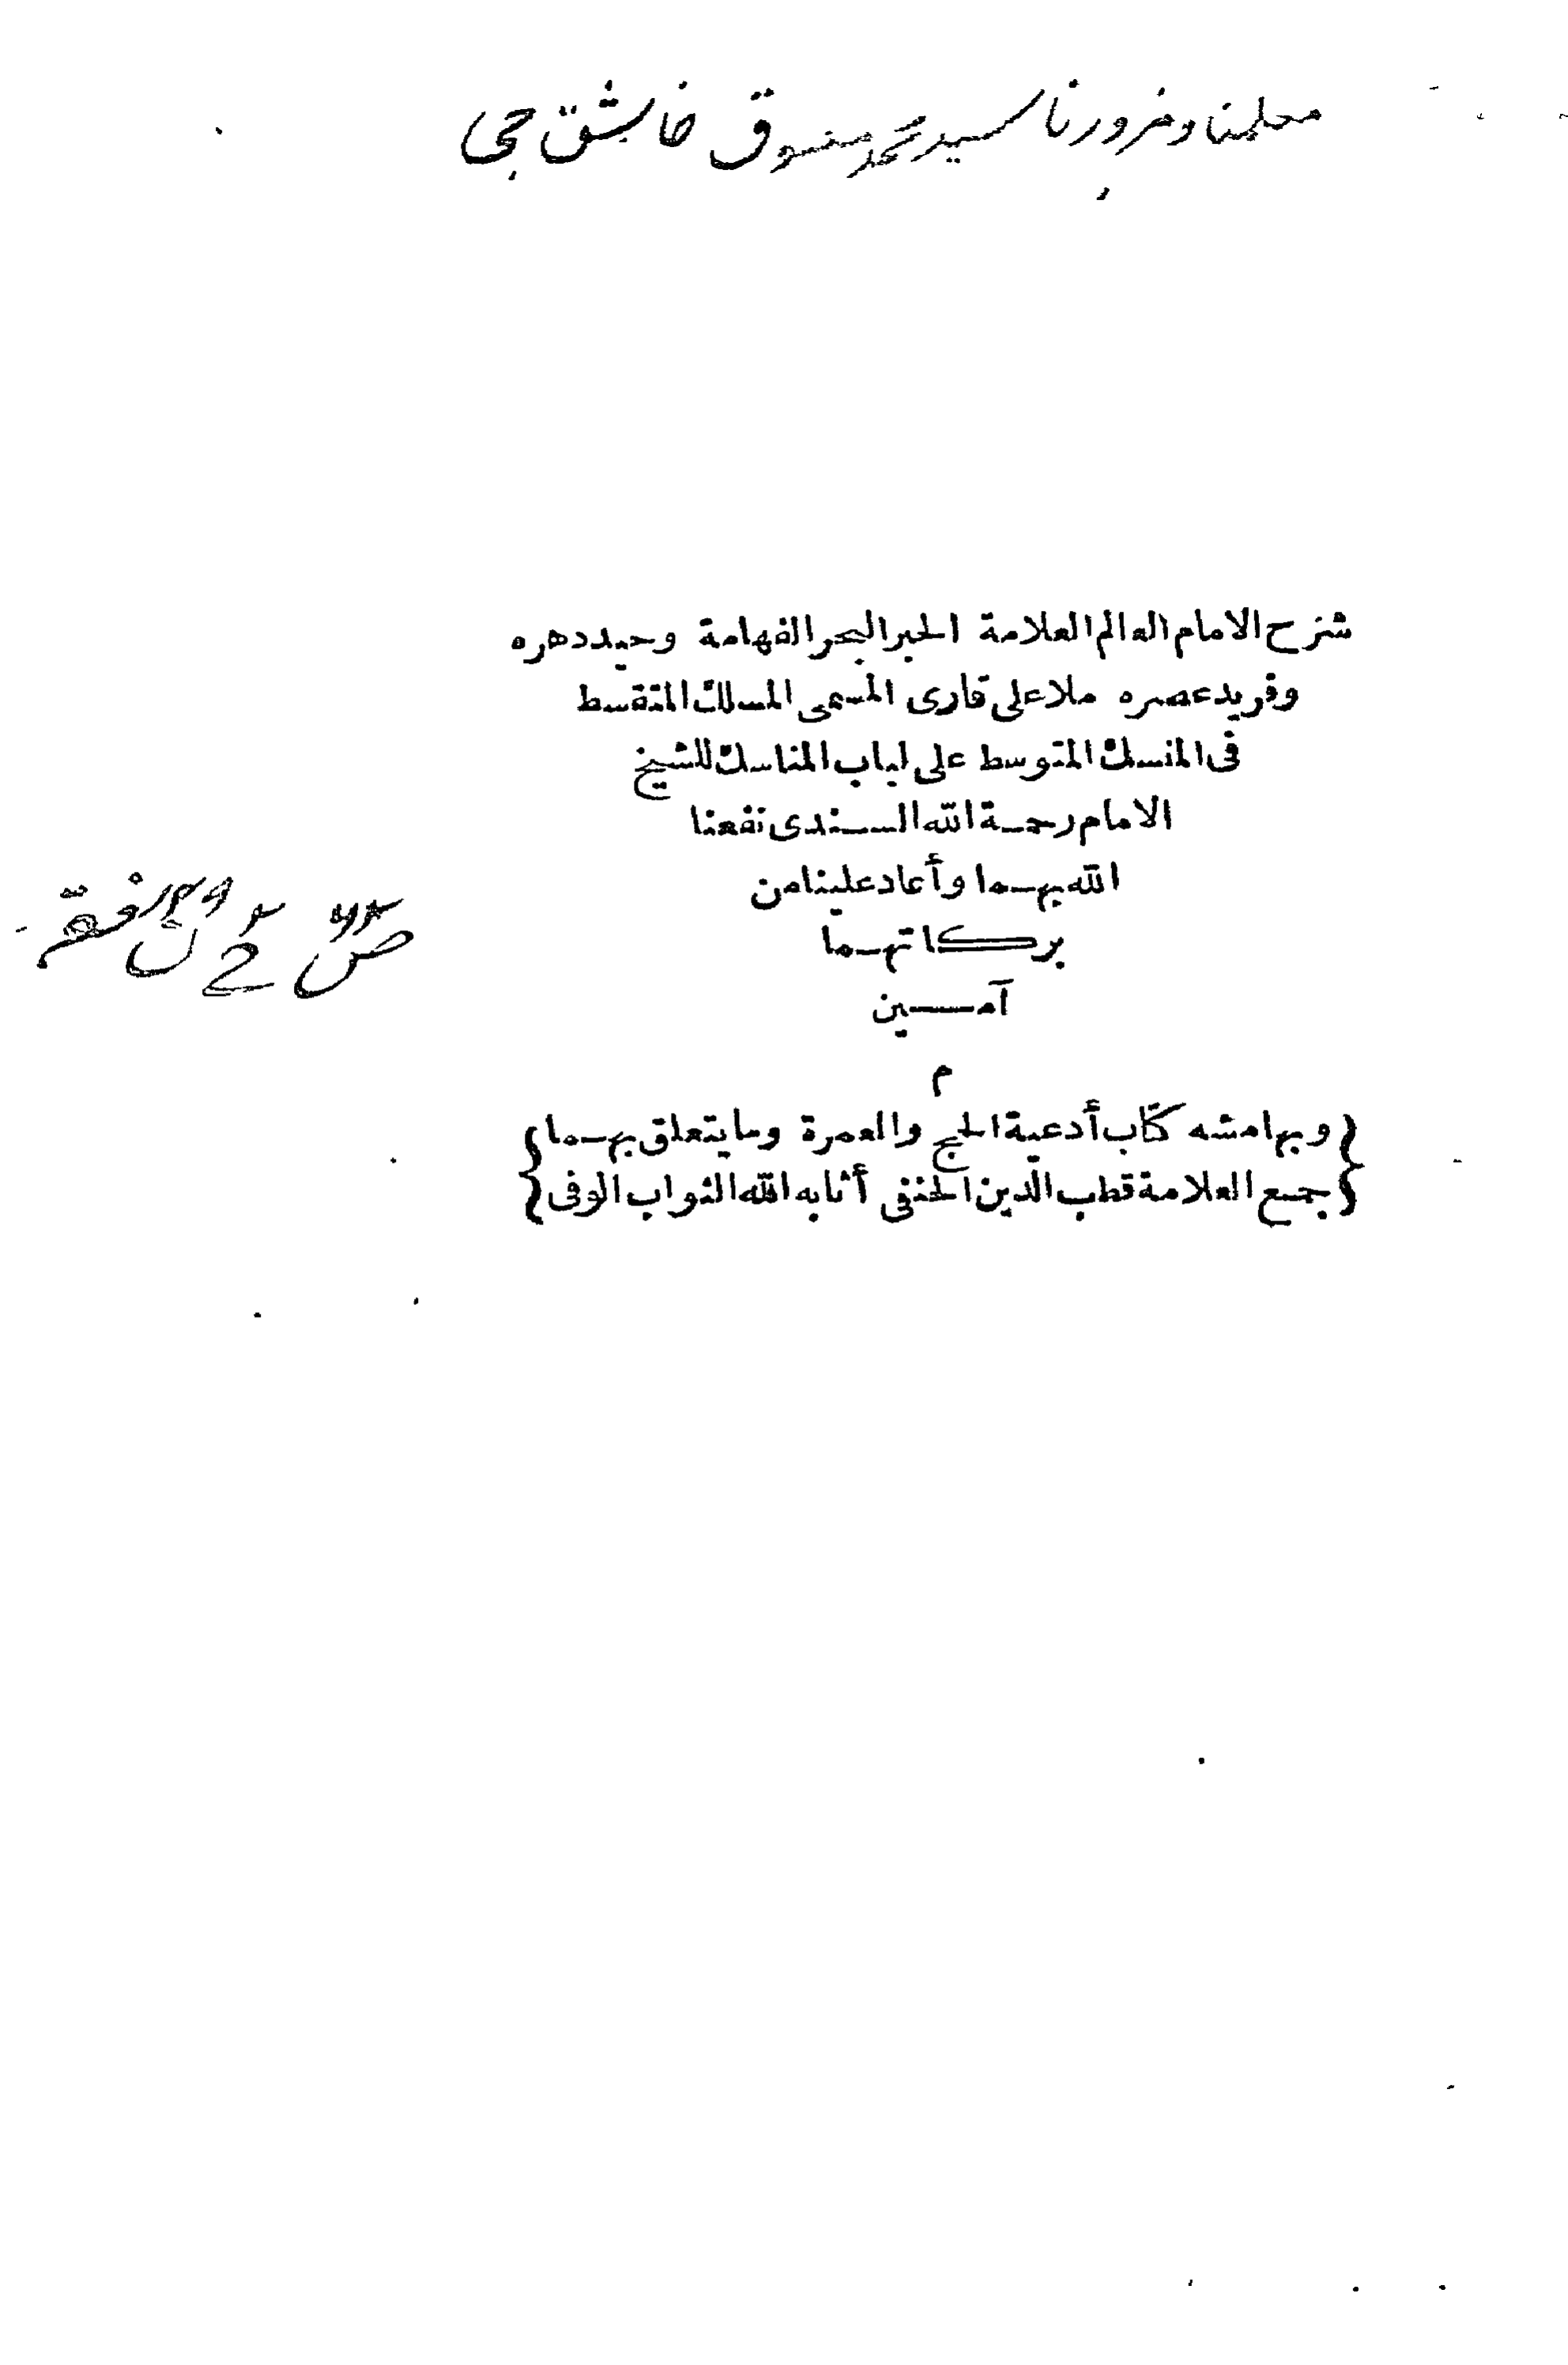 معلمنا ومزورنا سيد محمد معتوق خاشقجى
شرح الامام العالم العلامة الحبر البحر الفهامة وحيد دهره
وفريد عصره ملا على قارى المسمى المسلك المتقسط
فى المنسك المتوسط على لباب المناسك للشيخ
الامام رحمة الله السندى نفعنا
الله بهما وأعاد علينا من
بركاتهما
آمين
م
{وبهامشه كتاب أدعية الحج والعمرة وما يتعلق بهما}
{جمع العلامة قطب الدين الحنفى أثابه الله الثواب الوفى}
فقه